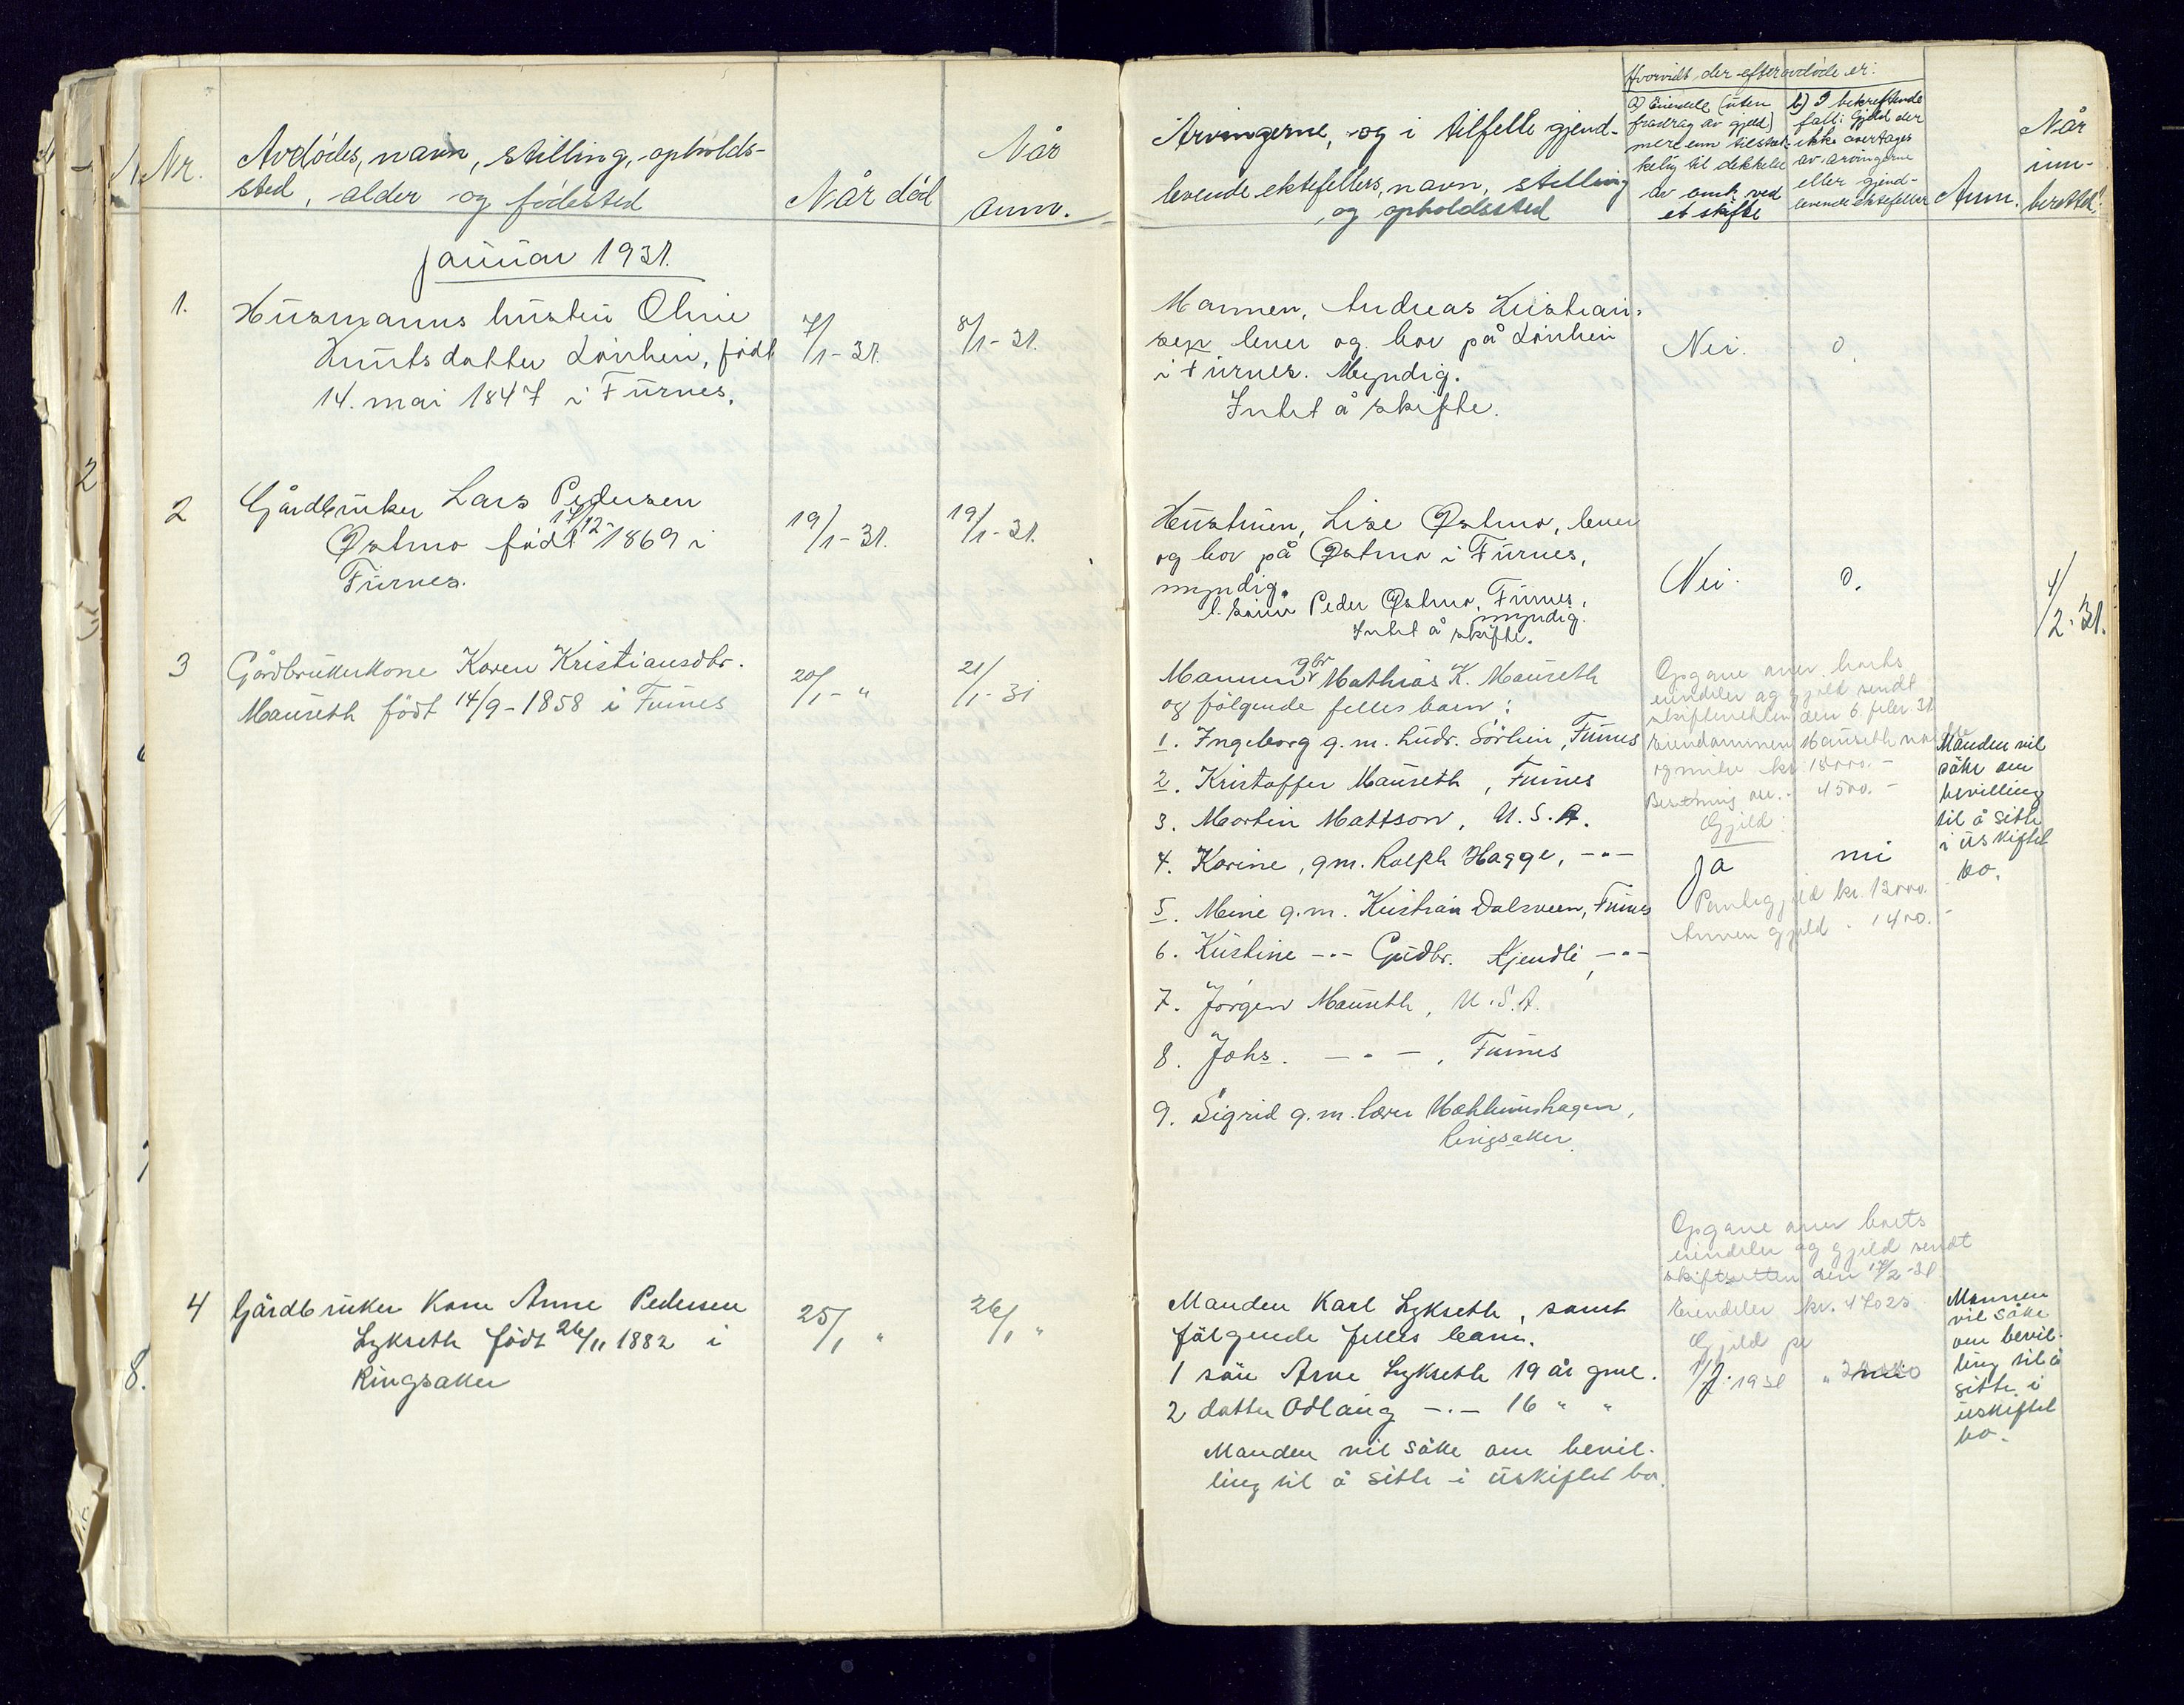 Nr.
Avdødes, navn, stilling, opholds-
sted, alder og fødested
Når død
Når
anm.
Januar 1931.
1.
Husmanns hustru Oline
Knutsdatter Lönhei, født
14. mai 1847 i Furnes.
7/1-31.
8/1-31.
2
Gårdbruker Lars Pedersen
Østmo født 14/12-1869 i
Furnes.
19/1-31.
19/1-31.
3
Gårdbrukerkone Karen Kristiansdtr.
Maurseth født 14/9-1858 i Furnes
20/1- "
21/1-31
4
Gårdbruker Kone Anne Pedersen
Lykseth født 26/11 1882 i
Ringsaker
25/1 "
26/1 "
Arvingerne, og i tilfelle gjend-
levende ektefellers, navn, stilling
og opholdssted
Hvorvidt der efter avdøde er:
a) Eiendele (uten
fradrag av gjeld)
mere enn tilstræk-
kelig til dekkelse
av omk. ved
et skifte
b) I bekreftende
fall: Gjeld der
ikke overtages
av arvingerne
eller gjend-
levende ektefeller
Anm.
Når
inn-
berettet.
Mannen, Andreas Kristian-
sen lever og bor på Lönhei
i Furnes. Myndig.
Intet å skifte.
Nei.
0.
Hustruen, Lise Østmo, lever
og bor på Østmo i Furnes,
myndig.
1. sønn Peder Østmo, Furnes,
myndig.
Intet å skifte.
Nei.
0.
4/2-31.
Mannen gbr Mathias K. Maurseth
og følgende felles barn:
1. Ingeborg g.m. Ludv. Sörlien, Furnes
2. Kristoffer Maurseth, Furnes
3. Martin Mattson, U.S.A.
4. Karine, gm. Ralph Hagge, -"-
5. Mine g.m. Kristian Dalsveen, Furnes
6. Kristine -"- Gudbr. Kjendli, -"-
7. Jörgen Maurseth, U.S.A.
8. Johs. -"-, Furnes
9. Sigrid g.m. Mæhlumshagen,
Ringsaker.
Opgave over boets
eiendeler og gjeld sendt
skifteretten den 6. febr. 31
Eiendommen Maurseth
kr. 18000.-
4500.-
Gjeld:
ja
nei
Pantegjeld kr. 12000.-
Annen gjeld " 1400.-
Manden vil
søke om
bevilling
til å sitte
i uskiftet
bo.
Manden Karl Lykseth, samt
følgende felles barn.
1 søn Arne Lykseth 19 år gml.
2 datter Odlaug -"- 16 " "
Manden vil søke om bevil-
ling til å sitte i uskiftet bo.
Opgave over boets
eiendeler og gjeld sendt
skifteretten den 17/2-31.
Eiendeler kr. 47025
Gjeld pr
1/7-1931
Mannen
vil søke
om bevil-
ling til å
sitte i
uskiftet
bo.